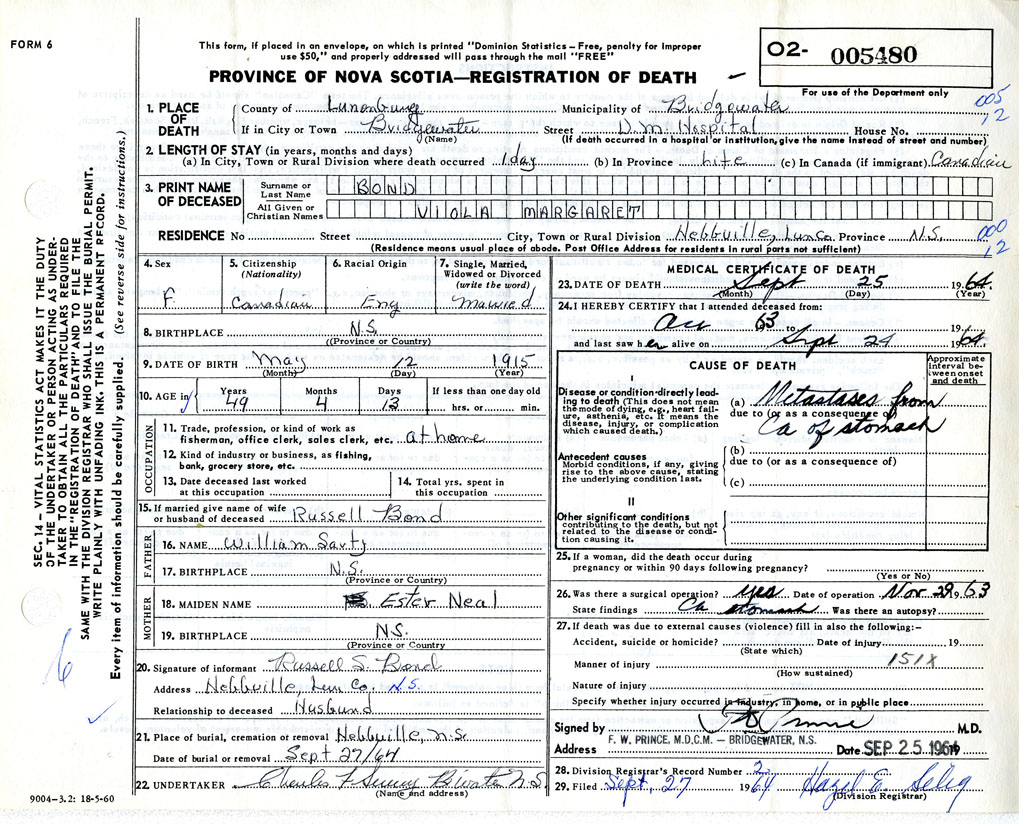 FORM 6
This form, if placed in an envelope, on which is printed "Dominion Statistics – Free, penalty for improper
use $50," and properly addressed will pass through the mail "FREE"
O2- 005480
PROVINCE OF NOVA SCOTIA—REGISTRATION OF DEATH
For use of the Department only
005
12
1. PLACE OF DEATH
County of Lunenburg Municipality of Bridgewater
If in City or Town Bridgewater Street D.M. Hospital House No.
(Name) (If death occurred in a hospital or institution, give the name instead of street and number)
2. LENGTH OF STAY (in years, months and days)
(a) In City, Town or Rural Division where death occurred 1 day (b) In Province Life (c) In Canada (if immigrant) Canadian
3. PRINT NAME OF DECEASED
Surname or Last Name BOND
All Given or Christian Names VIOLA MARGARET
RESIDENCE No Street City, Town or Rural Division Hebbville, Lun Co. Province N.S.
000
12
(Residence means usual place of abode. Post Office Address for residents in rural parts not sufficient)
SEC. 14 – VITAL STATISTICS ACT MAKES IT THE DUTY
OF THE UNDERTAKER OR PERSON ACTING AS UNDER-
TAKER TO OBTAIN ALL THE PARTICULARS REQUIRED
IN THE "REGISTRATION OF DEATH" AND TO FILE THE
SAME WITH THE DIVISION REGISTRAR WHO SHALL ISSUE THE BURIAL PERMIT.
WRITE PLAINLY WITH UNFADING INK. THIS IS A PERMANENT RECORD.
Every item of information should be carefully supplied. (See reverse side for instructions.)
4. Sex
F
5. Citizenship
(Nationality)
Canadian
6. Racial Origin
Eng
7. Single, Married,
Widowed or Divorced
(write the word)
Married
8. BIRTHPLACE N.S.
((Province or Country)
9. DATE OF BIRTH May 12 1915
(Month) (Day) (Year)
10. AGE in
Years Months Days If less than one day old
49 4 13 hrs. or min.
OCCUPATION
11. Trade, profession, or kind of work as
fisherman, office clerk, sales clerk, etc. at home
12. Kind of industry or business, as fishing,
bank, grocery store, etc.
13. Date deceased last worked
at this occupation
14. Total yrs. spent in
this occupation
15. If married give name of wife
or husband of deceased Russell Bond
FATHER
16. NAME William Sarty
17. BIRTHPLACE N.S.
(Province or Country)
MOTHER
18. MAIDEN NAME Ester Neal
19. BIRTHPLACE N.S.
(Province or Country
20. Signature of informant Russell S. Bond
Address Hebbville, Lun Co. N.S.
Relationship to deceased Husband
21. Place of burial, cremation or removal Hebbville, N.S.
Date of burial or removal Sept 27/64
22. UNDERTAKER Charles
(Name and address)
9004–3.2: 18-5-60
MEDICAL CERTIFICATE OF DEATH
23. DATE OF DEATH Sept 25 1964
(Month) (Day) (Year)
24. I HEREBY CERTIFY that I attended deceased from:
63 to 19
and last saw her alive on Sept 24 1964
CAUSE OF DEATH
Approximate
interval be-
tween onset
and death
I
Disease or condition directly lead-
ing to death (This does not mean
the mode of dying, e.g., heart fail-
ure, asthenia, etc. It means the
disease, injury, or complication
which caused death.)
(a) Metastases from
due to (or as a consequence of)
Ca of stomach
Antecedent causes
Morbid conditions, if any, giving
rise to the above cause, stating
the underlying condition last.
(b)
due to (or as a consequence of)
(c)
II
Other significant conditions
contributing to the death, but not
related to the disease or condi-
tion causing it.
25. If a woman, did the death occur during
pregnancy or within 90 days following pregnancy?
(Yes or No)
26. Was there a surgical operation? yes Date of operation Nov 29 19 63
State findings Ca stomach Was there an autopsy?
27. If death was due to external causes (violence) fill in also the following:–
Accident, suicide or homicide? Date of injury 19
(State which)
151X
Manner of injury
(How sustained)
Nature of injury
Specify whether injury occurred in industry, in home, or in public place
Signed by M.D.
F. W. PRINCE, M.D.C.M. – BRIDGEWATER, N.S.
Address Date SEP 25 1964
28. Division Registrar's Record Number 2
29. Filed Sept. 27 1964 Hazel E. Selig
(Division Registrar)